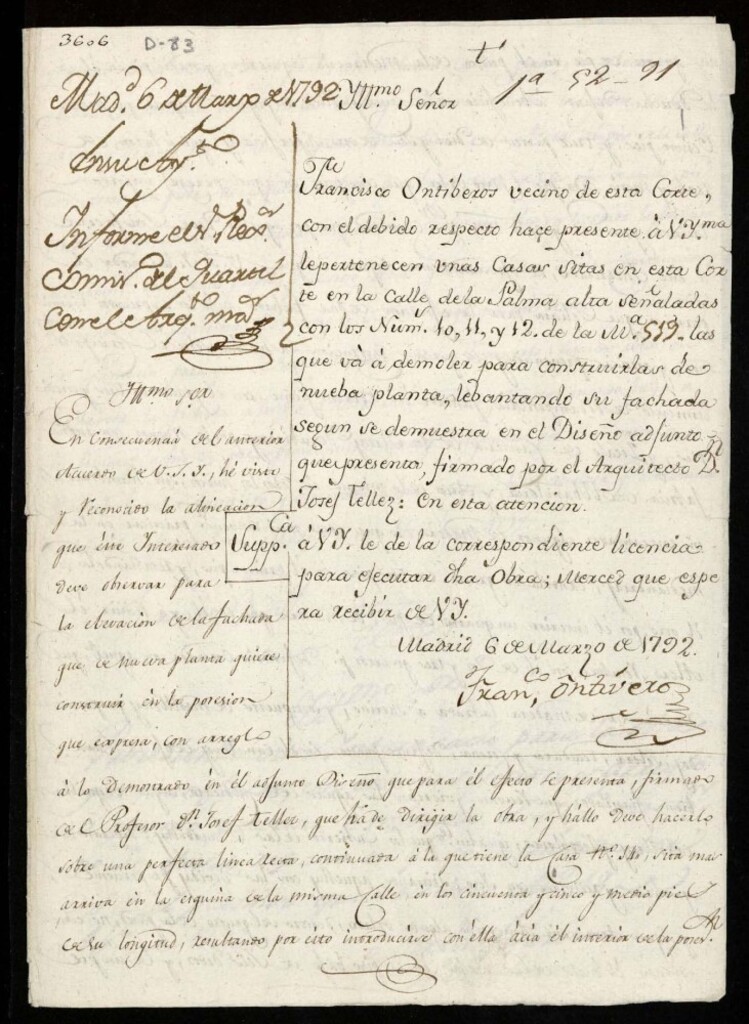 3606 D-83
t 1ª 52-91
Mad.d 6 de Marzo de 1792.
En su Ay.to
Informe el s.r Rex.or
Comis. del Quartel
con el Arq.to m.or
Yll.mo Señor
Fran.co Ontiberos vecino de esta Corte,
con el debido respecto haçe presente à V Y.ma
le pertenecen unas Casas sitas en esta Cor
te en la Calle de la Palma alta señaladas
con los Núm.s 10, 11, y 12. de la M.a 519. las
que và à demoler para construirlas de
nueba planta, lebantando su fachada
segun se demuestra en el Diseño adjunto
que presenta, firmado por el Arquitecto D.n
Josef Tellez: En esta atencion.
Supp.ca à VY. le de la correspondiente licencia
para ejecutar dha Obra; Merced que espe
ra recibir de VY.
Madrid 6 de Marzo de 1792.
Fran.co Ontivero
Yll.mo s.or
En consecuencia del anterior
Acuerdo de V.S.Y., hé visto
y reconocido la alineacion
que éste Interesado
deve observar para
la elevacion de la fachada
que de nueva planta quiere
construir én la posesion
que expresa, con arreglo
à lo Demostrado én él adjunto Diseño que para él efecto se presenta, firmado
del Profesor d.n Josef Tellez, que há de dirigir la obra, y hállo deve hacerlo
sobre una perfecta linea recta, continuada à la que tiene la Casa N.º 14, sita mas
arriva en la esquina de la misma Calle én los cincuenta y cinco y medio pies
de su longitud, resultando por ésto introducirse con élla àcia él interior de la poses.n